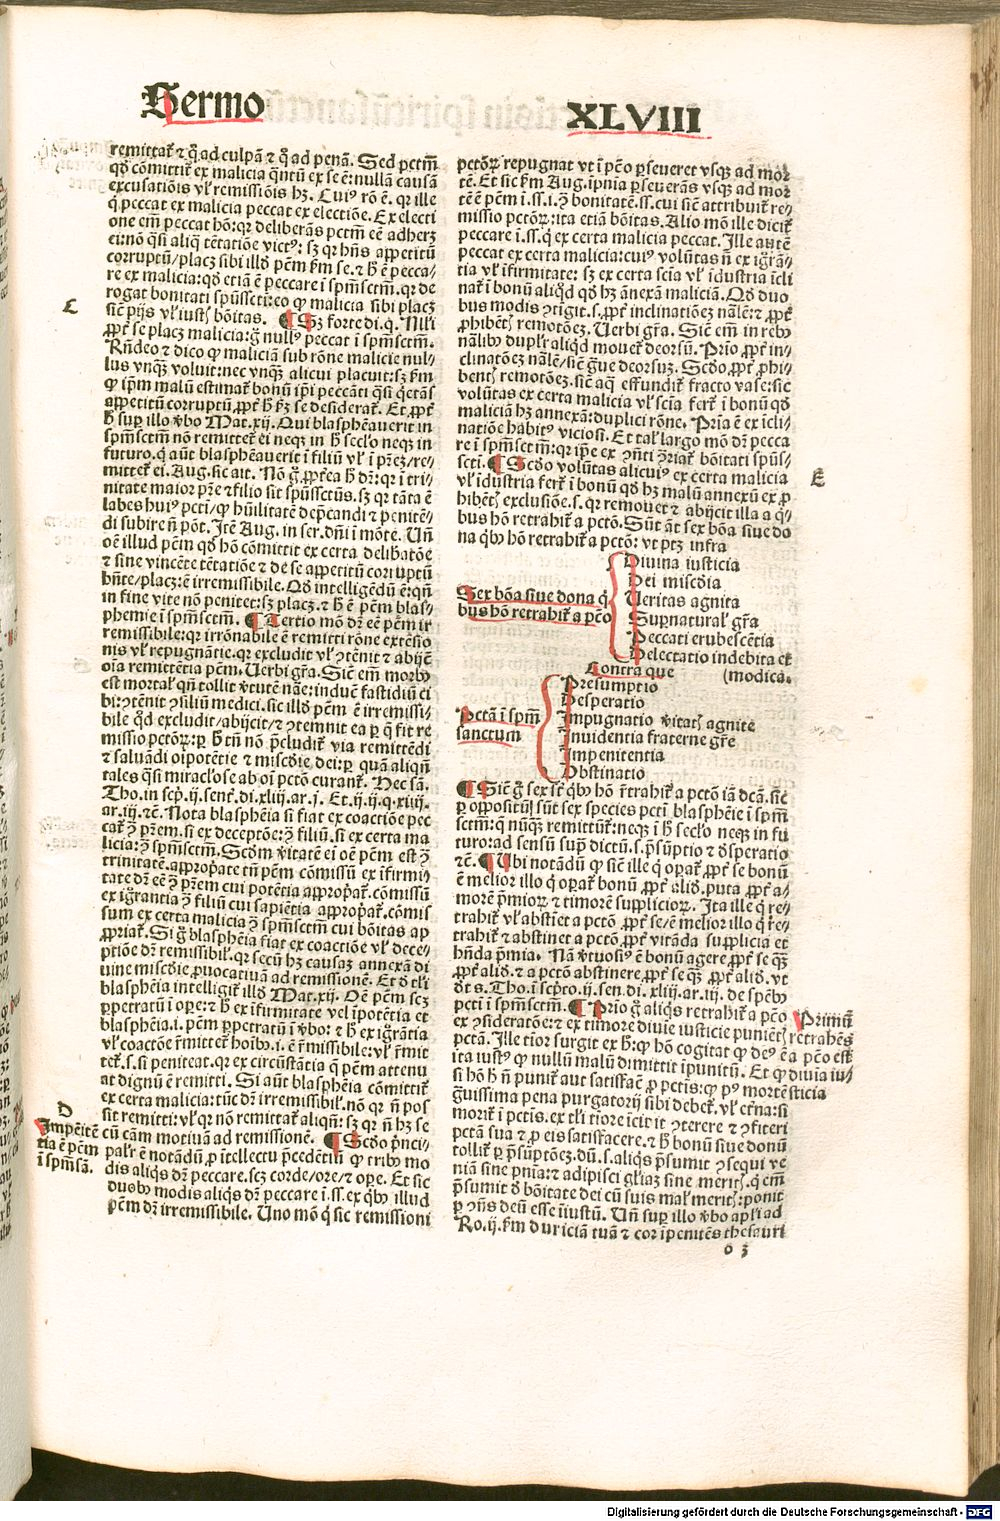 Sermo XLVIII
remittat᷑ ⁊ q̊ ad culpā ⁊ q̊ ad penā. Sed pctm̄
qd̓ cōmittit᷑ ex malicia q̄ntū ex se ē: nullā causā
excusatiōis vl̓ remissiōis hꝫ. Cuiꝰ rō ē. qꝛ ille
q̇ peccat ex malicia peccat ex electiōe. Ex electi
one em̄ peccat hō: qꝛ deliberās pctm̄ eē adherꝫ
ei: nō q̄si aliq̄ tētatiōe victꝰ: sꝫ qꝛ hn̄s appetitū
corruptū/placꝫ sibi illd̓ pēm ẜm se. ⁊ h̓ ē pecca⸗
re ex malicia: qd̓ etiā ē peccare ī spm̄sctm̄. qꝛ de
rogat bonitati spūsscti: eo ꝙ malicia sibi placꝫ
sicē pijs vl̓ iustꝭ bōitas. ¶ Sꝫ forte di. q. Nil̓i
ꝓpt̓ se placꝫ malicia: g̊ nullꝰ peccat ī spm̄sctm̄.
Rn̄deo ⁊ dico ꝙ maliciā sub rōne malicie nul⸗
lus vnq̄ꝫ voluit: nec vnq̄ꝫ alicui placuit: sꝫ ẜm
ꝙ ip̄m malū estimat᷑ bonū ip̄i peccāti q̄si q̇etās
appetitū corruptū ꝓpt̓ h̓ ẜꝫ se desiderat᷑. Et ꝓpt̓
h̓ sup̱ illo v̓bo Mat. xij. Qui blasphēauerit in
spm̄sctm̄ nō remittet᷑ ei neqꝫ in h̓ secl̓o neqꝫ in
futuro. q̇ aūt blasphēauerit ī filiū vl̓ ī pr̄eꝫ/re⸗
mittet᷑ ei. Aug. sic ait. Nō g̊ ꝓpt̓ea h̓ dr̄: qꝛ ī tri⸗
nitate maior pr̄e ⁊ filio sit spūssctūs. sꝫ qꝛ tāta ē
labes huiꝰ pcti/ꝙ hūilitatē dep̱candi ⁊ penitē⸗
di subire n̄ pōt. Itē Aug. in ser. dn̄i ī mōte. Un̄
oē illud pēm qd̓ hō cōmittit ex certa delibatōe
⁊ sine vincēte tētatiōe ⁊ de se appetitū corruptū
hn̄te/placꝫ: ē irremissibile. Qd̓ intelligēdū ē: qn̄
in fine vite nō penitet: sꝫ placꝫ. ⁊ h̓ ē pēm blas⸗
phemie ī spm̄sctm̄. ¶ Tertio mō dr̄ eē pēm ir
remissibile: qꝛ irrōnabile ē remitti rōne extēsio
nis vl̓ repugnātie. qꝛ excludit vl̓ ꝯtēnit ⁊ abijcē
oīa remittētia pēm. Uerbi gr̄a. Sicē em̄ morbꝰ
est mortal̓ qn̄ tollit v̓tutē nāe: induēn fastidiū ci
bi: ꝯtēnit ꝯsiliū medici. sic illd̓ pēm ē irremissi⸗
bile q̊d excludit/abijcit/⁊ ꝯtemnit ea p̱ q̄ fit re
missio pctōꝝ: p̱ h̓ tn̄ nō p̄cludit᷑ via remittēdi
⁊ saluādi oīpotētie ⁊ miscd̓ie dei: p̱ quā aliqn̄
tales q̄si miracl̓ose ab oī pctō curant᷑. Hec sā.
Tho. in scp̱. ij. sent̓. di. xliij. ar. j. Et. ij. ij. q. xiiij.
ar. iij. ⁊c̄. Nota blasphēia si fiat ex coactiōe pec
cat᷑ ꝯ pr̄em. si ex deceptōe: ꝯ filiū. si ex certa ma
licia: ꝯ spm̄sctm̄. Scd̓m v̓itatē ei oē pēm est ꝯ
trinitatē. approp̱ate tn̄ pēm cōmissū ex īfirmi⸗
tate dr̄ eē ꝯ pr̄em cui potētia approp̱at᷑. cōmissū
ex igr̄antia ꝯ filiū cui sapiētia approp̱at᷑. cōmis
sum ex certa malicia ꝯ spm̄sctm̄ cui bōitas ap
ꝓpriat᷑. Si g̊ blasphēia fiat ex coactiōe vl̓ dece⸗
ptiōe dr̄ remissibil̓. qꝛ secū hꝫ causaꝫ annexā di
uine miscd̓ie ꝓuocatiuā ad remissionē. Et d̓ tl̓i
blasphēia intelligit᷑ illd̓ Mat. xij. Oē pēm scꝫ
p̱petratū ī oꝑe: ⁊ h̓ ex īfirmitate vel īpotētia et
blasphēia. i. pēm p̱petratū ī v̓bo: ⁊ h̓ ex igr̄ātia
vl̓ coactōe r̄mittet᷑ hoībꝰ. i. ē r̄missibile: vl̓ r̄mit
tet᷑. s. si peniteat. qꝛ ex circūstātia q̇ pēm attenu
at dignū ē remitti. Si aūt blasphēia cōmittit᷑
ex certa malicia: tūc dr̄ irremissibil̓. nō qꝛ n̄ pos
sit remitti: vl̓ qꝛ nō remittat᷑ aliqn̄: sꝫ qꝛ n̄ hꝫ se
cū cām motiuā ad remissionē. ¶ Scd̓o p̄nci⸗
pal̓r ē notādū ꝓ ītellectu p̄cedētiū ꝙ tribꝰ mo
dis aliqs dr̄ peccare. scꝫ corde/ore/⁊ oꝑe. Et sic
duobꝰ modis aliqs dr̄ peccare ī. ss. ex qbꝰ illud
pēm dr̄ irremissibile. Uno mō q̇ sic remissioni
D
Impenitē
tia ē pēm
ī spm̄ sā.
C
pctōꝝ repugnat vt ī pēo ꝑseueret vsqꝫ ad mor
tē. Et sic ẜm Aug. īpnīa ꝑseuerās vsqꝫ ad mor
tē ē pēm ī. ss. ī. ꝯ bonitatē. ss. cui sicē attribuit᷑ re⸗
missio pctōꝝ: ita etiā bōitas. Alio mō ille dicit᷑
peccare ī. ss. q̇ ex certa malicia peccat. Ille autē
peccat ex certa malicia: cuiꝰ volūtas n̄ ex igr̄ā⸗
tia vl̓ īfirmitate: sꝫ ex certa scīa vl̓ īdustria īcli
nat᷑ ī bonū aliqd̓ qd̓ hꝫ ānexā maliciā. Qd̓ duo
bus modis ꝯtīgit. s. ꝓpt̓ inclinatiōeꝫ nāle: ⁊ ꝓpt̓
ꝓhibētꝭ remotōeꝫ. Uerbi gr̄a. Sicē em̄ in rebꝰ
nālibꝰ dupl̓r aliqd̓ mouet᷑ deorsū. Prīo ꝓpt̓ in⸗
clinatōeꝫ nāle/sicē g̊ue deorsuꝫ. Scd̓o ꝓpt̓ ꝓhi⸗
bentꝭ remotōeꝫ. sicē aq̄ effundit᷑ fracto vase: sic
volūtas ex certa malicia vl̓ scīa fert᷑ ī bonū qd̓
maliciā hꝫ annexā: duplici rōne. Pria ē ex īcli⸗
natiōe habitꝰ viciosi. Et tal̓ largo mō dr̄ pecca
re ī spm̄sctm̄: qꝛ ip̄e ex ꝯn̄ti ꝯriat᷑ bōitati spūs⸗
scti. ¶ Scd̓o volūtas alicuiꝰ ex certa malicia
vl̓ īdustria fert᷑ ī bonū qd̓ hꝫ malū annexū ex ꝓ
hibētꝭ exclusiōe. s. qꝛ remouet᷑ ⁊ abijcit illa a q̇⸗
bus hō retrahit᷑ a pctō. Sūt aūt sex bōa siue do
na qbꝰ hō retrahit᷑ a pctō: vt ptꝫ infra
Diuina iusticia
Dei miscd̓ia
Sex bōa siue dona q̇ Ueritas agnita
bus hō retrahit᷑ a pctō Supnatural̓ gr̄a
Peccati erubescētia
Delectatio indebita et
Contra que (modica.
Presumptio
Desperatio
Pctā ī spm̄ Impugnatio v̓itatꝭ agnite
sanctum Inuidentia fraterne gr̄e
Impenitentia
Obstinatio
¶ Sicē g̊ sex sc̄ qbꝰ hō r̄trahit᷑ a pctō iā dcā. sic
ꝑ oppositū sūt sex species pcti blasphēie ī spm̄
sctm̄: q̄ nūqꝫ remittūt᷑: neqꝫ ī h̓ secl̓o neqꝫ in fu
turo: ad sensū sup̱ dictū. s. p̄sūptio ⁊ dsperatio
⁊c̄. ¶ Ubi notādū ꝙ sicē ille q̇ oꝑat᷑ ꝓpt̓ se bonū
ē melior illo q̇ oꝑat᷑ bonū ꝓpt̓ alid̓. puta ꝓpt̓ a⸗
morē p̄mioꝝ ⁊ timorē supplicioꝝ. Ita ille q̇ re⸗
trahit᷑ vl̓ abstīet a pctō ꝓpt̓ se/ē melior illo q̇ re⸗
trahit᷑ ⁊ abstinet a pctō ꝓpt̓ vitāda supplicia et
hn̄da p̄mia. Nā v̓tuosiꝰ ē bonū agere ꝓpt̓ se qꝫ
ꝓpt̓ alid̓. ⁊ a pctō abstinere ꝓpt̓ se qꝫ ꝓpt̓ alid̓. vt
dt s. Tho. ī scp̱to. ij. sen. di. xliij. ar. iij. de spēbꝰ
pcti ī spm̄sctm̄. ¶ Prīo g̊ aliqs retrahit᷑ a pctō
ex ꝯsideratōe: ⁊ ex timore diuīe iusticie puniētꝭ
pctā. Ille tior surgit ex h̓: ꝙ hō cogitat ꝙ deꝰ ē
ita iustꝰ ꝙ nullū malū dimittit īpunitū. Et ꝙ
si hō h̓ n̄ punit᷑ aut satisfac̄ ꝓ pctis: ꝙ pꝰ mortē
g̊uissima pena purgatorij sibi debet᷑. vl̓ et̓na: si
morit᷑ ī pctīs. ex tl̓i tiore īcit īt ꝯterere ⁊ ꝯfiteri
pctā sua ⁊ ꝓ eis satisfacere. ⁊ h̓ bonū siue donū
tollit᷑ ꝑ p̄sūptōeꝫ. dū. s. aliqs p̄sumit ꝯsequi ve
niā sine pnīa: ⁊ adipisci gl̓iaꝫ sine meritꝭ. q̇ em̄
p̄sumit d̓ bōitate dei cū suis mal̓ meritꝭ: ponit
ꝑ ꝯn̄s deū esse īiustū. Un̄ sup̱ illo v̓bo apl̓i ad
Ro. ij. ẜm duriciā tuā ⁊ cor īpenitēs thesauri
E
Primū
retrahēs
a pēo est
diuīa iu⸗
sticia
o 3
Digitalisierung gefördert durch die Deutsche Forschungsgemeinschaft - DFG